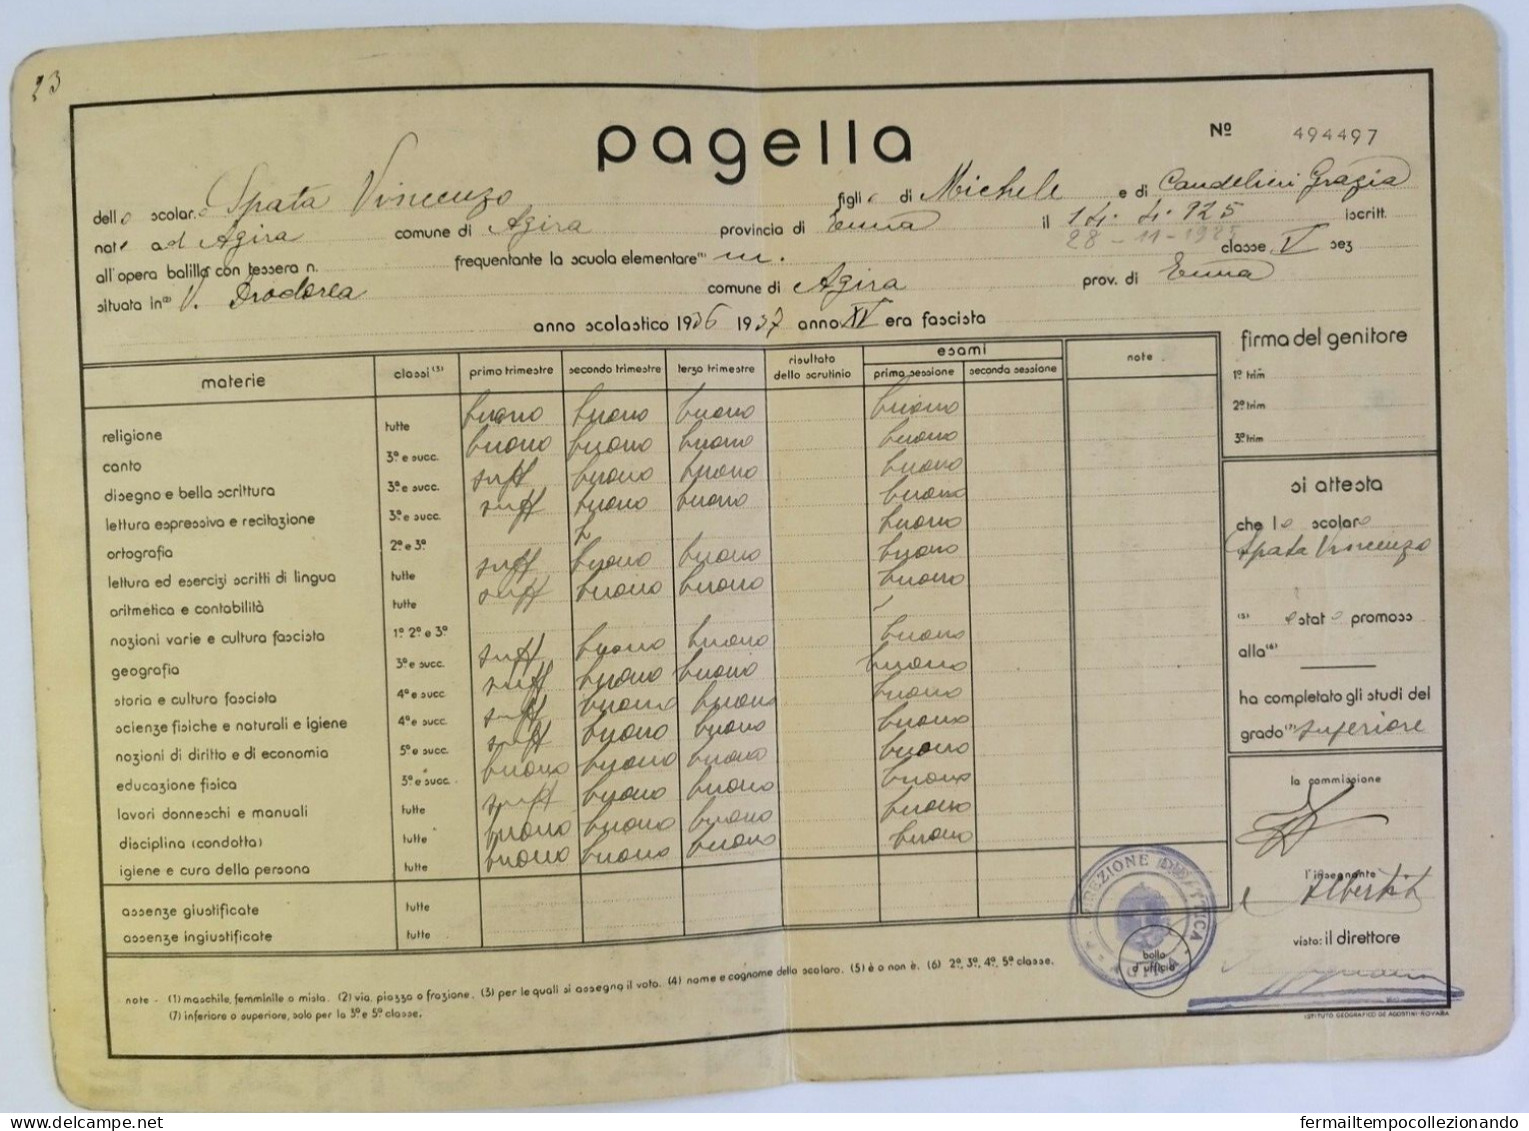 23
pagella
Nº 494497
dello scolaro Spata Vincenzo figlio di Michele e di Candelieri Grazia
nato ad Agira comune di Agira provincia di Enna il 14. 4. 925 iscritt.
28-11-1925
all'opera balilla con tessera n. frequentante la scuola elementare (1) m. classe V sez
situata in (2) V. comune di Agira prov. di Enna
anno scolastico 1936 1937 anno XV era fascista
materie classi (3) primo trimestre secondo trimestre terzo trimestre risultato dello scrutinio esami prima sessione seconda sessione note
religione tutte buono buono buono buono
canto 3ª e succ. buono buono buono buono
disegno e bella scrittura 3ª e succ. suff buono buono buono
lettura espressiva e recitazione 3ª e succ. suff buono buono buono
ortografia 2ª e 3ª buono
lettura ed esercizi scritti di lingua tutte suff buono buono buono
aritmetica e contabilità tutte suff buono buono buono
nozioni varie e cultura fascista 1ª 2ª e 3ª
geografia 3ª e succ. suff buono buono buono
storia e cultura fascista 4ª e succ. suff buono buono buono
scienze fisiche e naturali e igiene 4ª e succ. suff buono buono buono
nozioni di diritto e di economia 5ª e succ. suff buono buono buono
educazione fisica 3ª e succ. buono buono buono buono
lavori donneschi e manuali tutte suff buono buono buono
disciplina (condotta) tutte buono buono buono buono
igiene e cura della persona tutte buono buono buono buono
assenze giustificate tutte
assenze ingiustificate tutte
firma del genitore
1º trim
2º trim
3º trim
si attesta
che lo scolaro
Spata Vincenzo
(5) è stato promosso
alla (6)
ha completato gli studi del
grado (7) superiore
la commissione
l'insegnante
visto: il direttore
DIREZIONE DIDATTICA
bollo
d'ufficio
note - (1) maschile, femminile o mista. (2) via, piazza o frazione. (3) per le quali si assegna il voto. (4) nome e cognome dello scolaro. (5) è o non è. (6) 2ª, 3ª, 4ª, 5ª classe.
(7) inferiore o superiore, solo per la 3ª e 5ª classe.
ISTITUTO GEOGRAFICO DE AGOSTINI-NOVARA
delcampe.net
fermailtempocollezionando